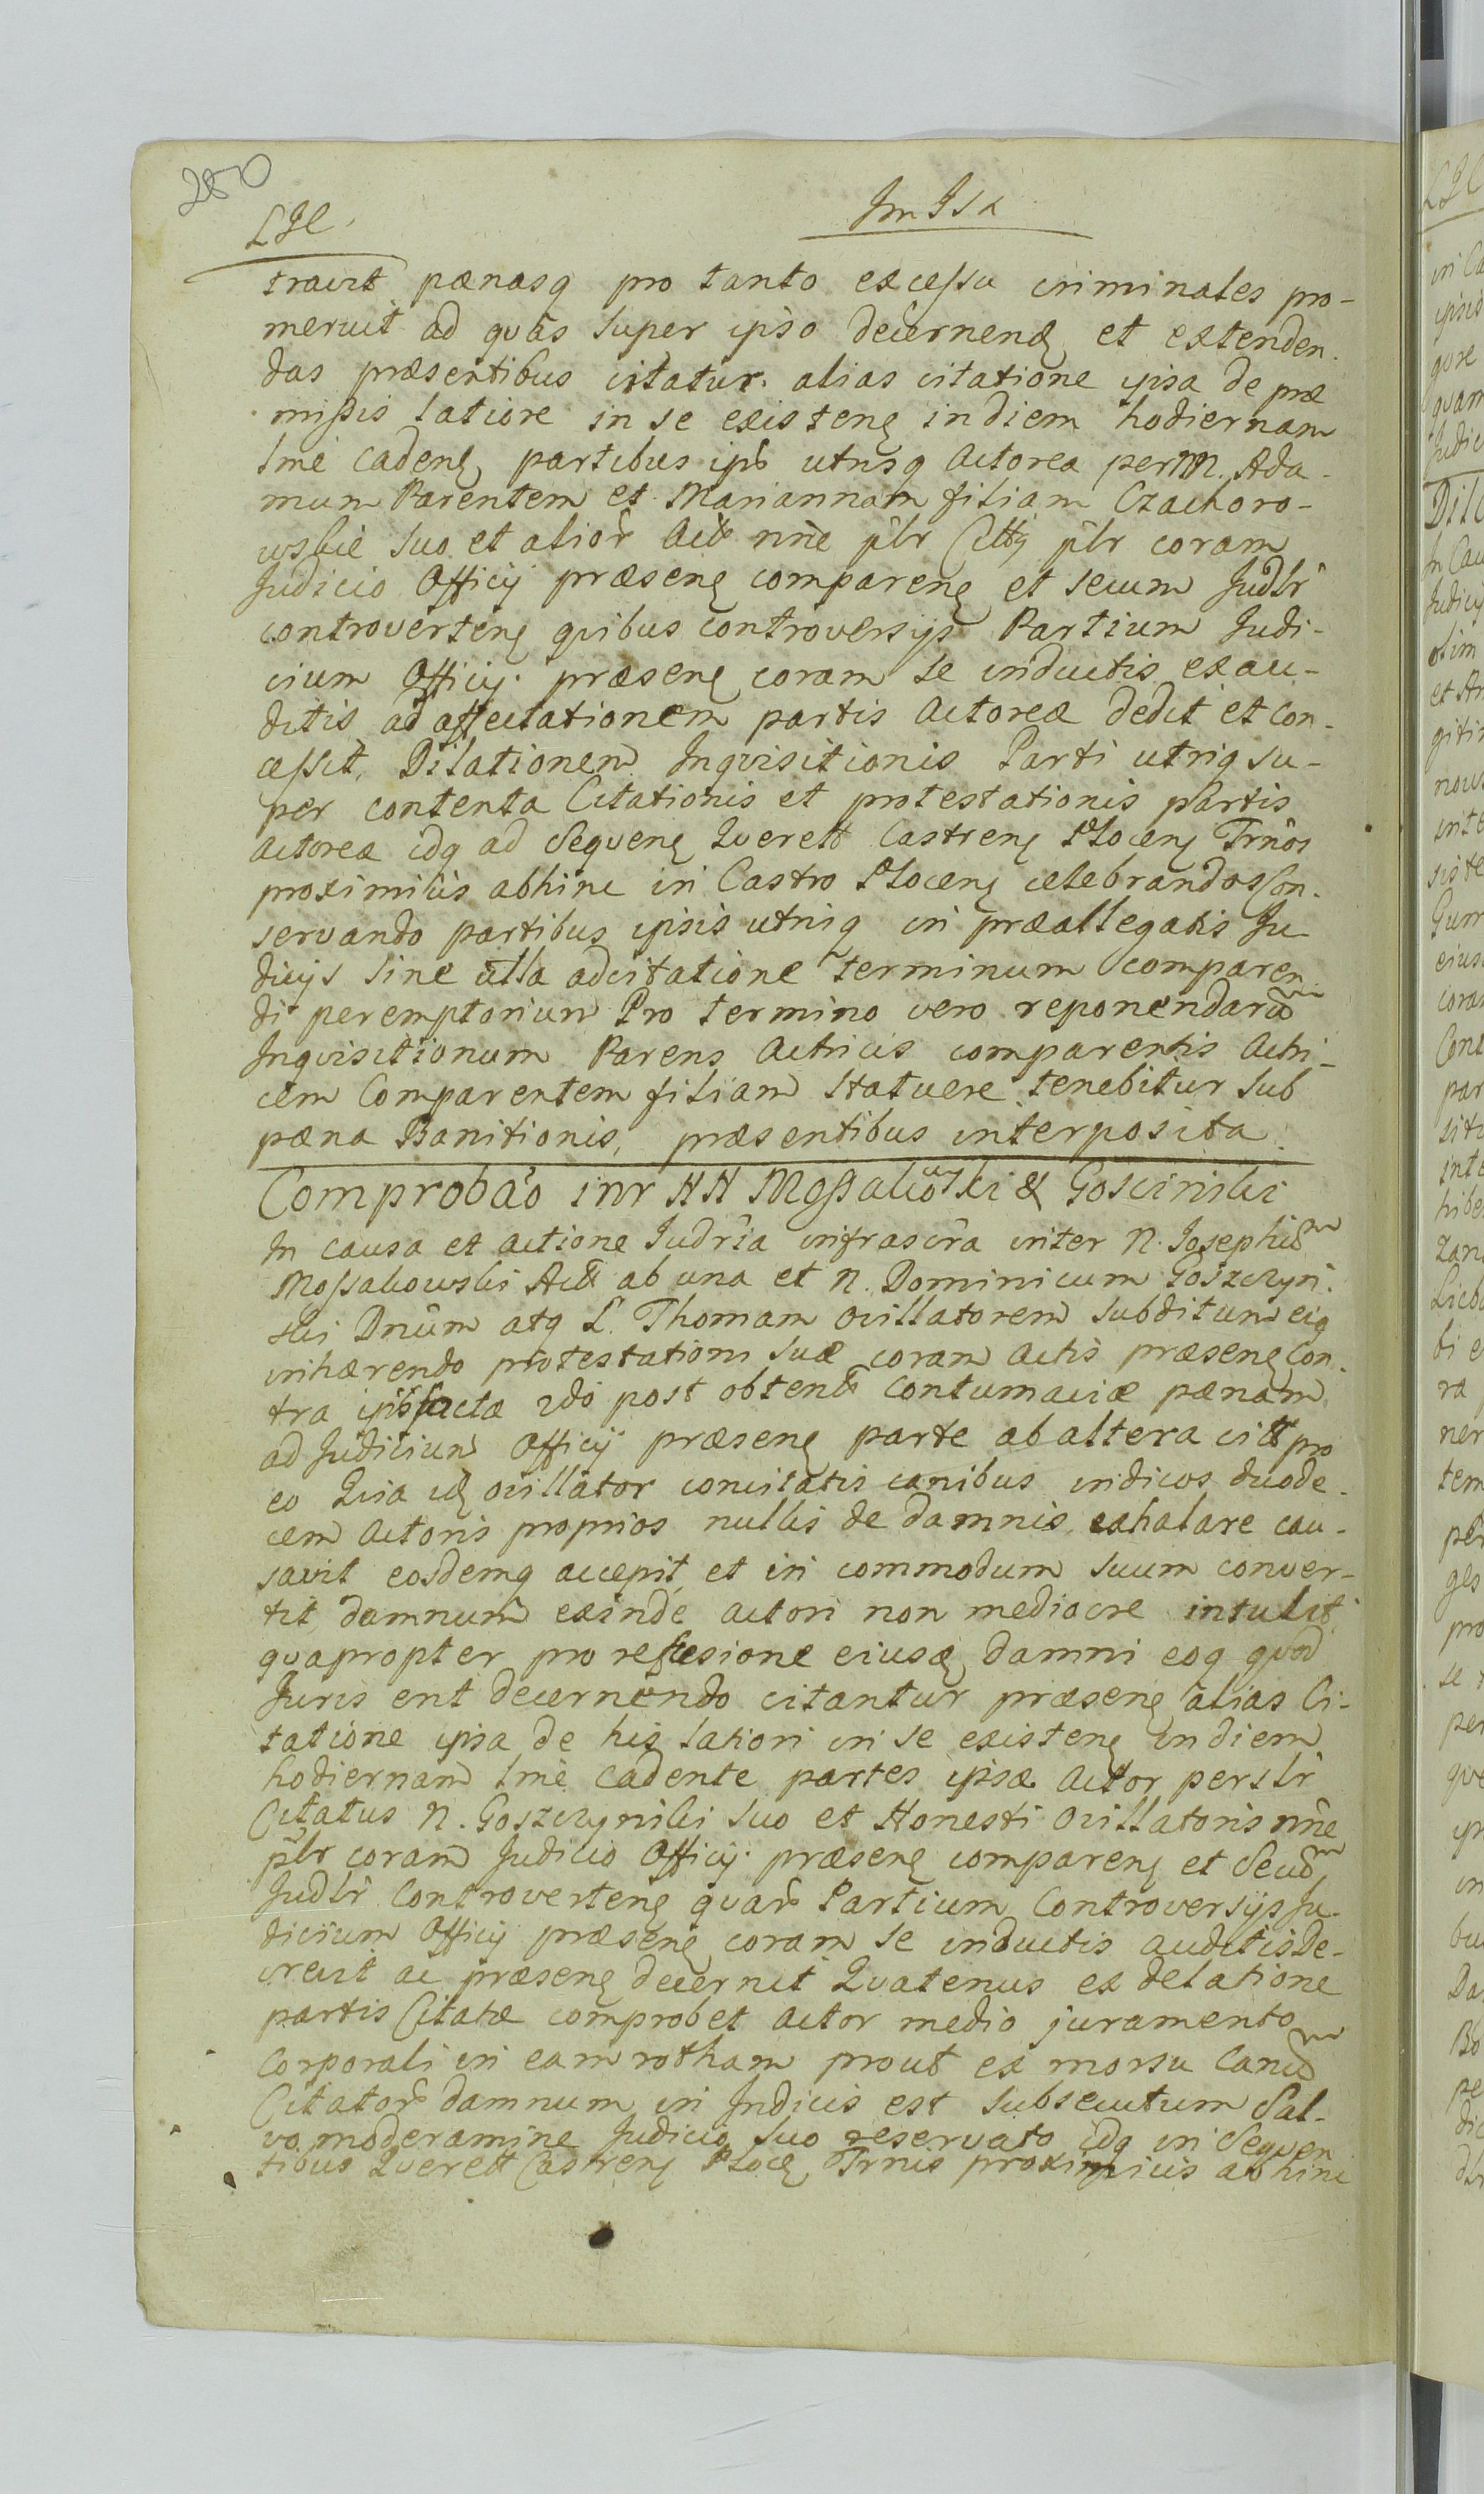 280
LJC.
travit pænasq pro tanto excessu criminales pro-
meruit ad qvas super ipso decernend et extenden.
das præsentibus citatur. alias citatione ipsa de præ
missis latiore in se existenς in diem hodiernam
lmè cadenς partibus ips utrisq Actorea per M. Ada-
mum Parentem et Mariannam filiam Czachoro-
wskie suo et alior Act nnè plr Cttς plr coram
Judicio Officij præsenς comparenς et secum Judlr
controvertenς qvibus controversijs Partium Judi-
cium Officij præsenς coram se inductis exau-
ditis ad affectationem partis Actoreæ dedit et con-
cessit, Dilationem Inqvisitionis Parti utriq su-
per contenta Citationis et protestationis partis
Actoreæ idq ad Seqvenς Qverell Castrenς Plocenς Trnos
proximius abhinc in Castro Plocenς celebrandos Con-
servando partibus ipsis utriq in præallegatis Ju
dicijs sine ulla adcitatione terminum comparen
di peremptorium Pro termino vero reponendarum
Inqvisitionum Parens Actricis comparentis Actri-
cem Comparentem filiam statuere tenebitur sub
pæna Banitionis, præsentibus interposita
Comprobao inr NN Mossakowski & Goscinski
In causa et actione Judria infrascra inter N. Josephum
Mossakowski Act ab una et N. Dominicum Goszczyn.
ski Dnum atq L. Thomam ovillatorem subditum eiq
inhærendo protestationi suæ coram Actis præsenς con.
tra ips factæ 2do post obtent contumaciæ pænam
ad Judicium Officij præsenς parte ab altera citt pro
eo Qvia id ovillator concitatis canibus indicos duode-
cem Actoris proprios nullis de damnis exhalare cau-
savit eosdemq accepit et in commodum suum conver-
tit, damnum exinde actori non mediocre intulit
qvapropter pro refusione eiusd damni eoq qvod
Juris erit decernendo citantur præsenς alias Ci-
tatione ipsa de his latiori in se existenς in diem
hodiernam lmè cadente partes ipsæ Actor perslr
Citatus N. Goszczynski suo et Honesti ovillatoris nne
plr coram Judicio Officij præsenς comparenς et Secum
Judlr Controvertenς qvar Partium Controversijs Ju-
dicium Officij præsenς coram se inductis auditis De-
crevit ac præsenς decernit Qvatenus ex delatione
partis Citatæ comprobet Actor medio juramento
Corporali in eam rotham prout ex morsu Canum
Citator damnum in Indicis est subsecutum Sal-
vo moderamine Judicio suo reservato idq in Seqven
tibus Qverell Castrenς Plocς Trnis proximius abhinc